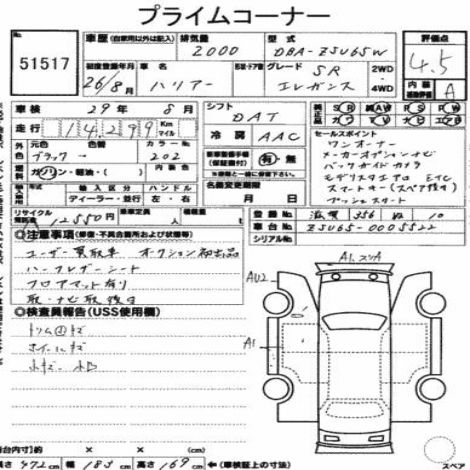 プライムコーナー
No. 51517
車歴 (自家用以外は記入) 排気量 2000 型式 DBA-ZSU65W
初度登録年月 26/8 車名 ハリアー グレード SR エレガンス 2WD・4WD
評価点 4.5
内装 A
車検 29年 8月
走行 14299 Km マイル
シフト DAT
冷房 AAC
外色 元色 ブラック 色替 カラーNo. 202 内装色
燃料 ガソリン・軽油・( )
輸入区分 ハンドル
ディーラー・並行 左・右
リサイクル 12550円 乗車定員 人 積載量
(保証書付) 有・無
名義変更期限 月 日
セールスポイント
ワンオーナー
メーカーオプションナビ
バックガイドカメラ
モデリスタエアロ ETC
スマートキー(スペア付き)
プッシュスタート
登録No. 滋賀 356 10
車台No. ZSU65-0005522
シリアルNo.
◎注意事項 (修復・不具合箇所および状態等)
ユーザー買取車 オークション初出品
ハーフレザーシート
フロアマット有り
取・ナビ取後日
◎検査員報告 (USS使用欄)
A1
AU2
A1
(荷台内寸) 約 × × cm
長さ 472cm 幅 183cm 高さ 169cm ←(車検証上の寸法)
スペア